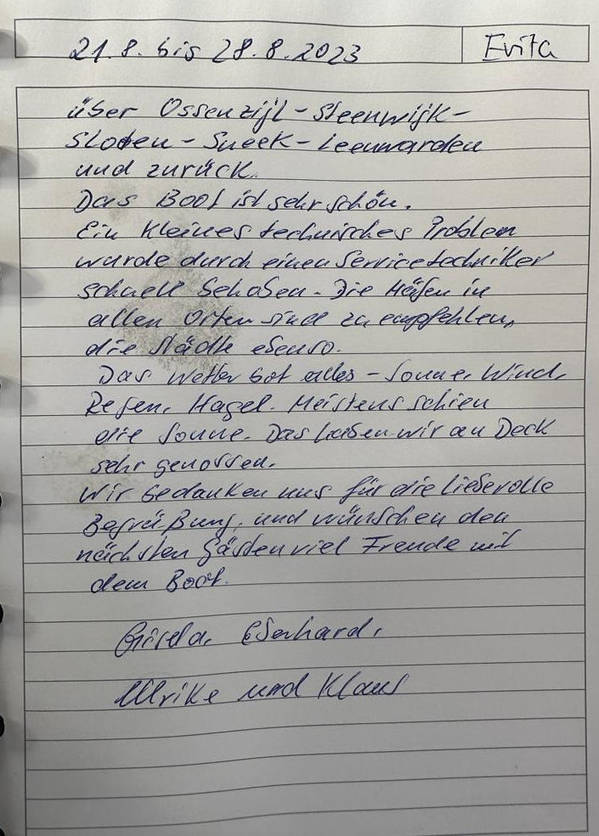 21.8. bis 28.8.2023
Evita
über Ossenzijl-Steenwijk-
Sloten-Sneek-Leeuwarden
und zurück.
Das Boot ist sehr schön.
Ein kleines technisches Problem
wurde durch einen Servicetechniker
schnell behoben. Die Häfen in
allen Orten sind zu empfehlen,
die Städte ebenso.
Das Wetter bot alles - Sonne, Wind,
Regen, Hagel. Meistens schien
die Sonne. Das haben wir an Deck
sehr genossen.
Wir bedanken uns für die liebevolle
Begrüßung, und wünschen den
nächsten Gästen viel Freude mit
dem Boot.
Gisela, Eberhard,
Ulrike und Klaus